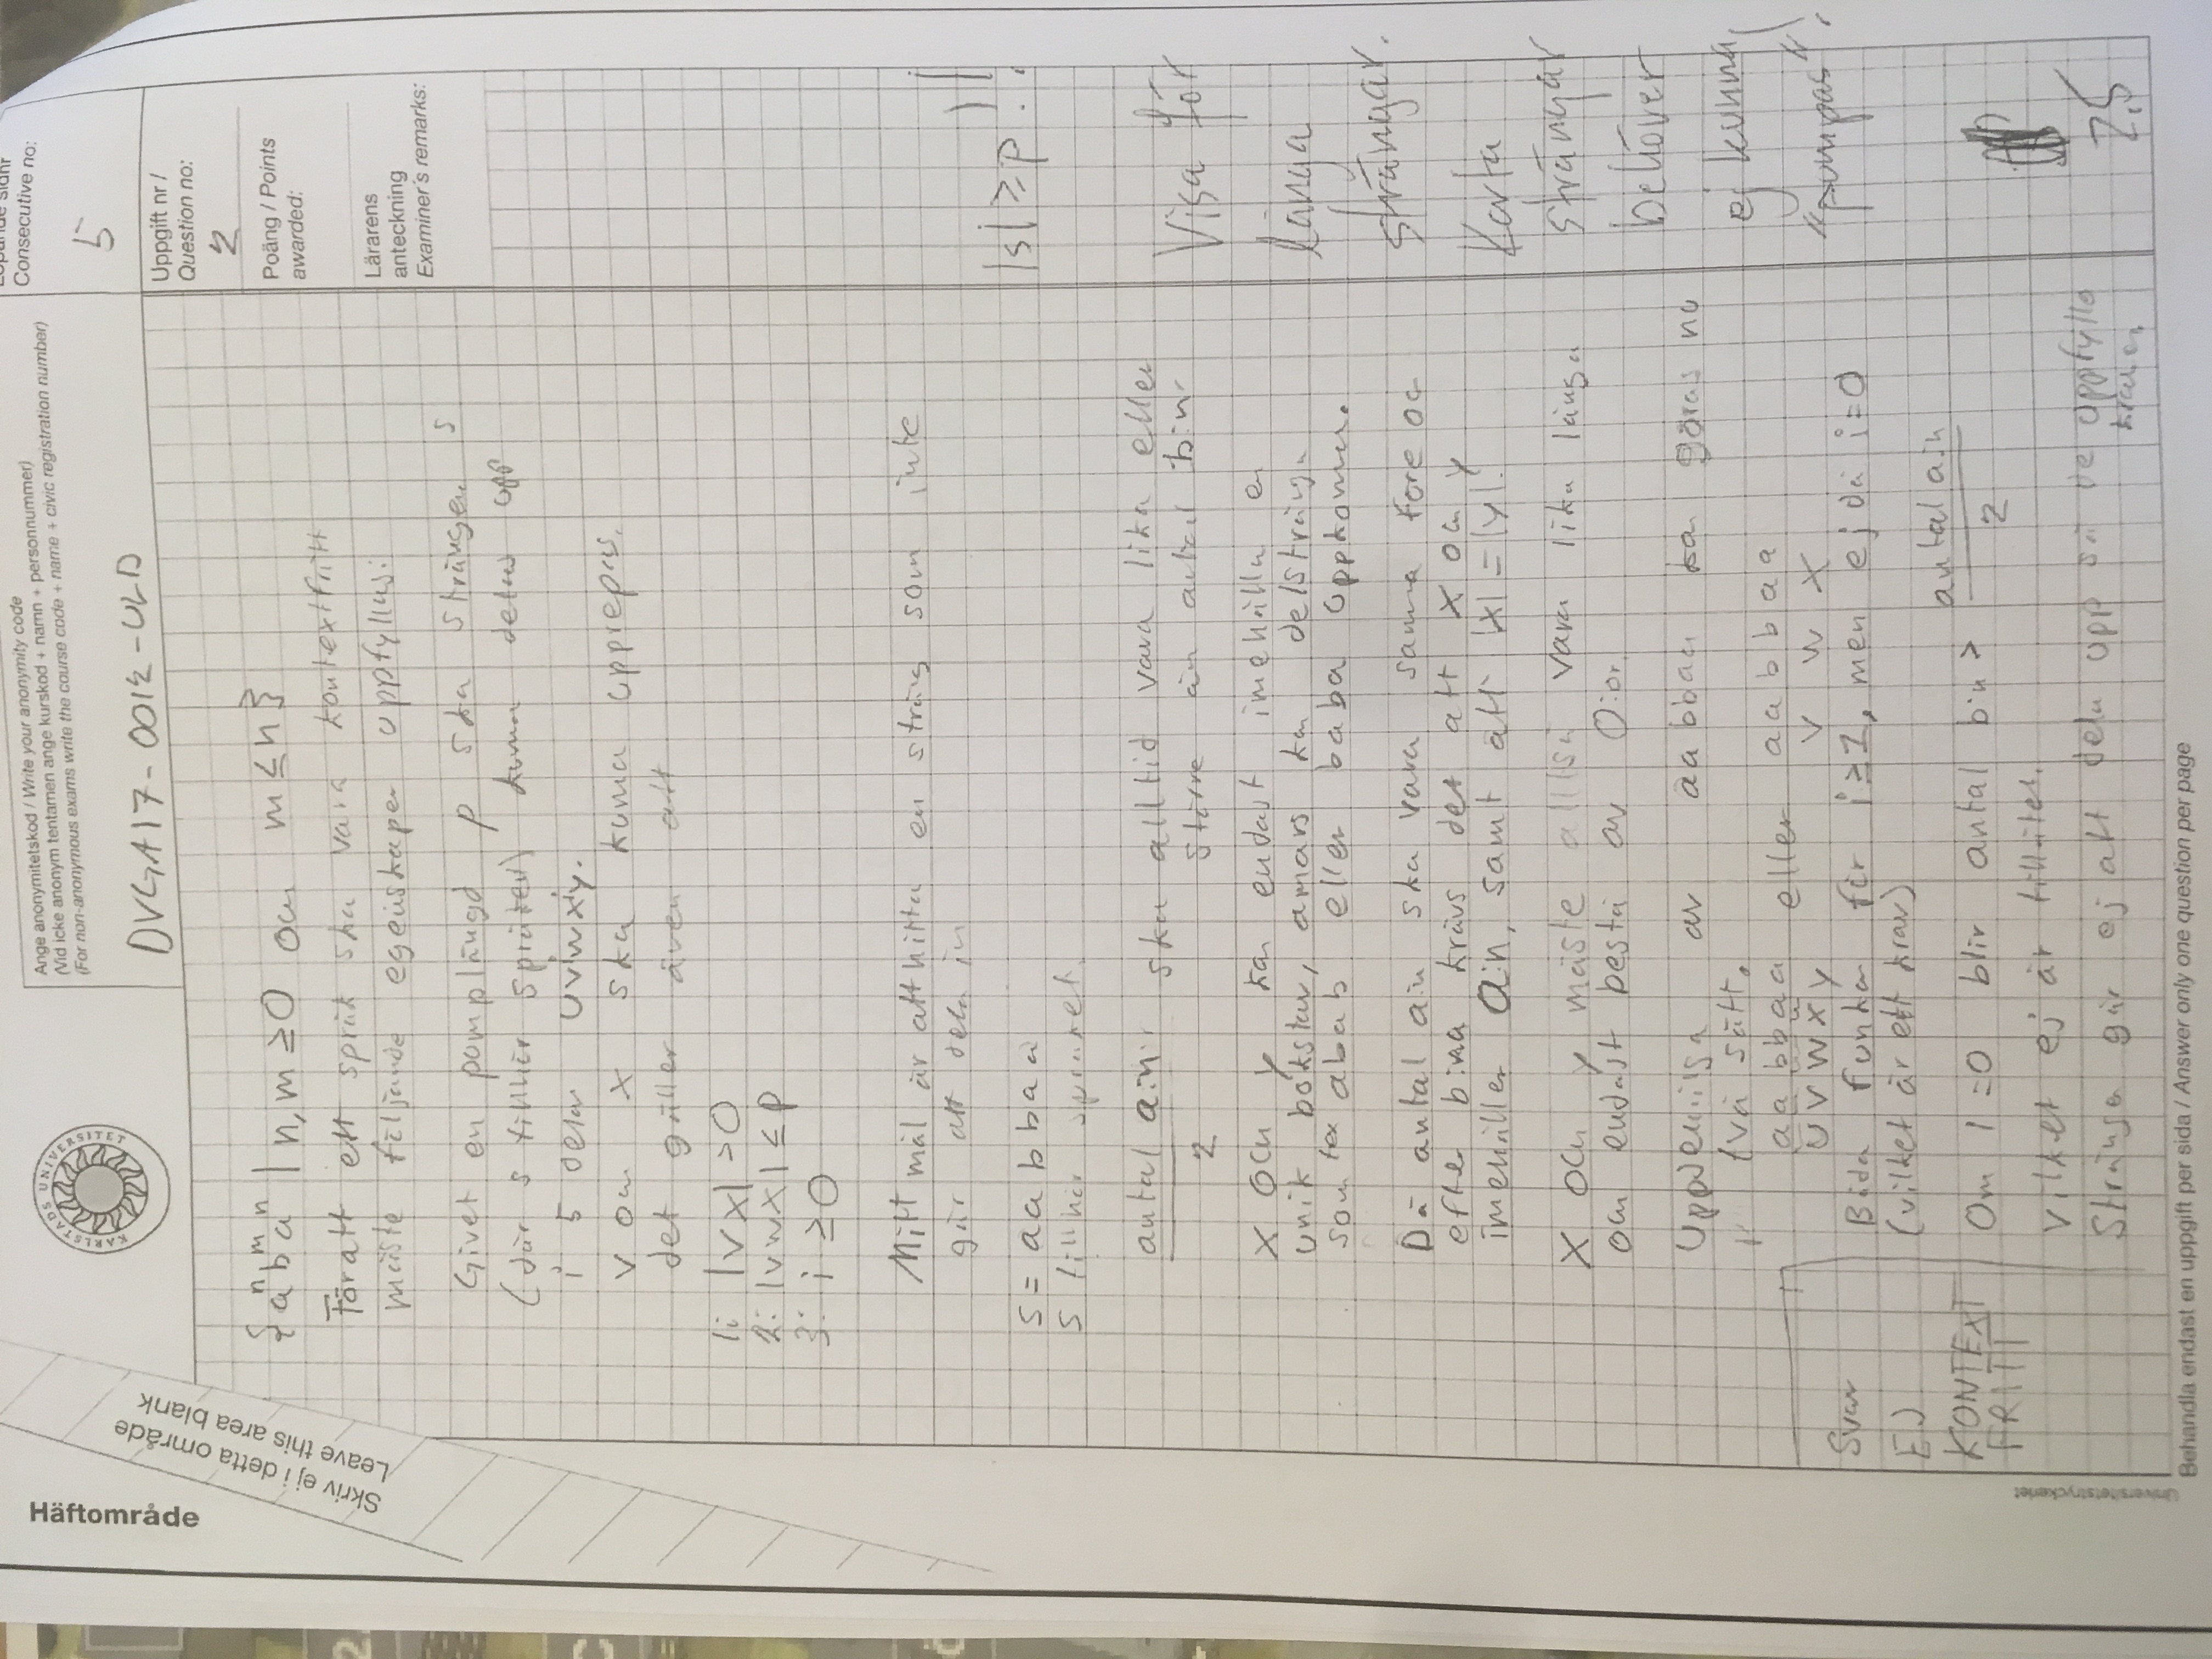 Häftområde
Skriv ej i detta område
Leave this area blank
KARLSTADS UNIVERSITET
Ange anonymitetskod / Write your anonymity code
(Vid icke anonym tentamen ange kurskod + namn + personnummer)
(For non-anonymous exams write the course code + name + civic registration number)
DVGA17-0012-ULD
Löpande sidnr
Consecutive no:
5
Uppgift nr /
Question no:
2
Poäng / Points
awarded:
Lärarens
anteckning
Examiner's remarks:
{aⁿbᵐaⁿ | n,m ≥0 och m≤n}
För att ett språk ska vara kontextfritt
måste följande egenskaper uppfyllas:
Givet en pumplängd p ska strängen s
(där s tillhör språket) kunna delas upp
i 5 delar uvⁱwxⁱy.
v och x ska kunna upprepas.
det gäller även att
1: |vx| >0
2: |vwx| ≤ p
3: i ≥0
Mitt mål är att hitta en sträng som inte
går att dela in
s = aabbaa
s tillhör språket.
antal a:n ska alltid vara lika eller
2 större än antal b:n
x och y kan endast innehålla en
unik bokstav, annars kan delsträngar
som tex abab eller baba uppkomma.
Då antal a:n ska vara samma före och
efter b:na krävs det att x och y
innehåller a:n, samt att |x|=|y|.
x och y måste alltså vara lika långa
och endast bestå av 0:or.
Uppdelningen av aabbaa kan göras på
två sätt.
aabbaa eller aabbaa
u v w x y v w x
Båda funkar för i≥1, men ej då i=0
(vilket är ett krav)
Om i=0 blir antal b:n > antal a:n
2
vilket ej är tillåtet.
Strängen går ej att dela upp så de uppfyller
kraven.
Svar
EJ
KONTEXT
FRITT
|s| ≥ p !!
Visa för
långa
strängar.
Korta
strängar
behöver
ej kunna
"pumpas"!
2,5
Universitetstryckeriet
Behandla endast en uppgift per sida / Answer only one question per page